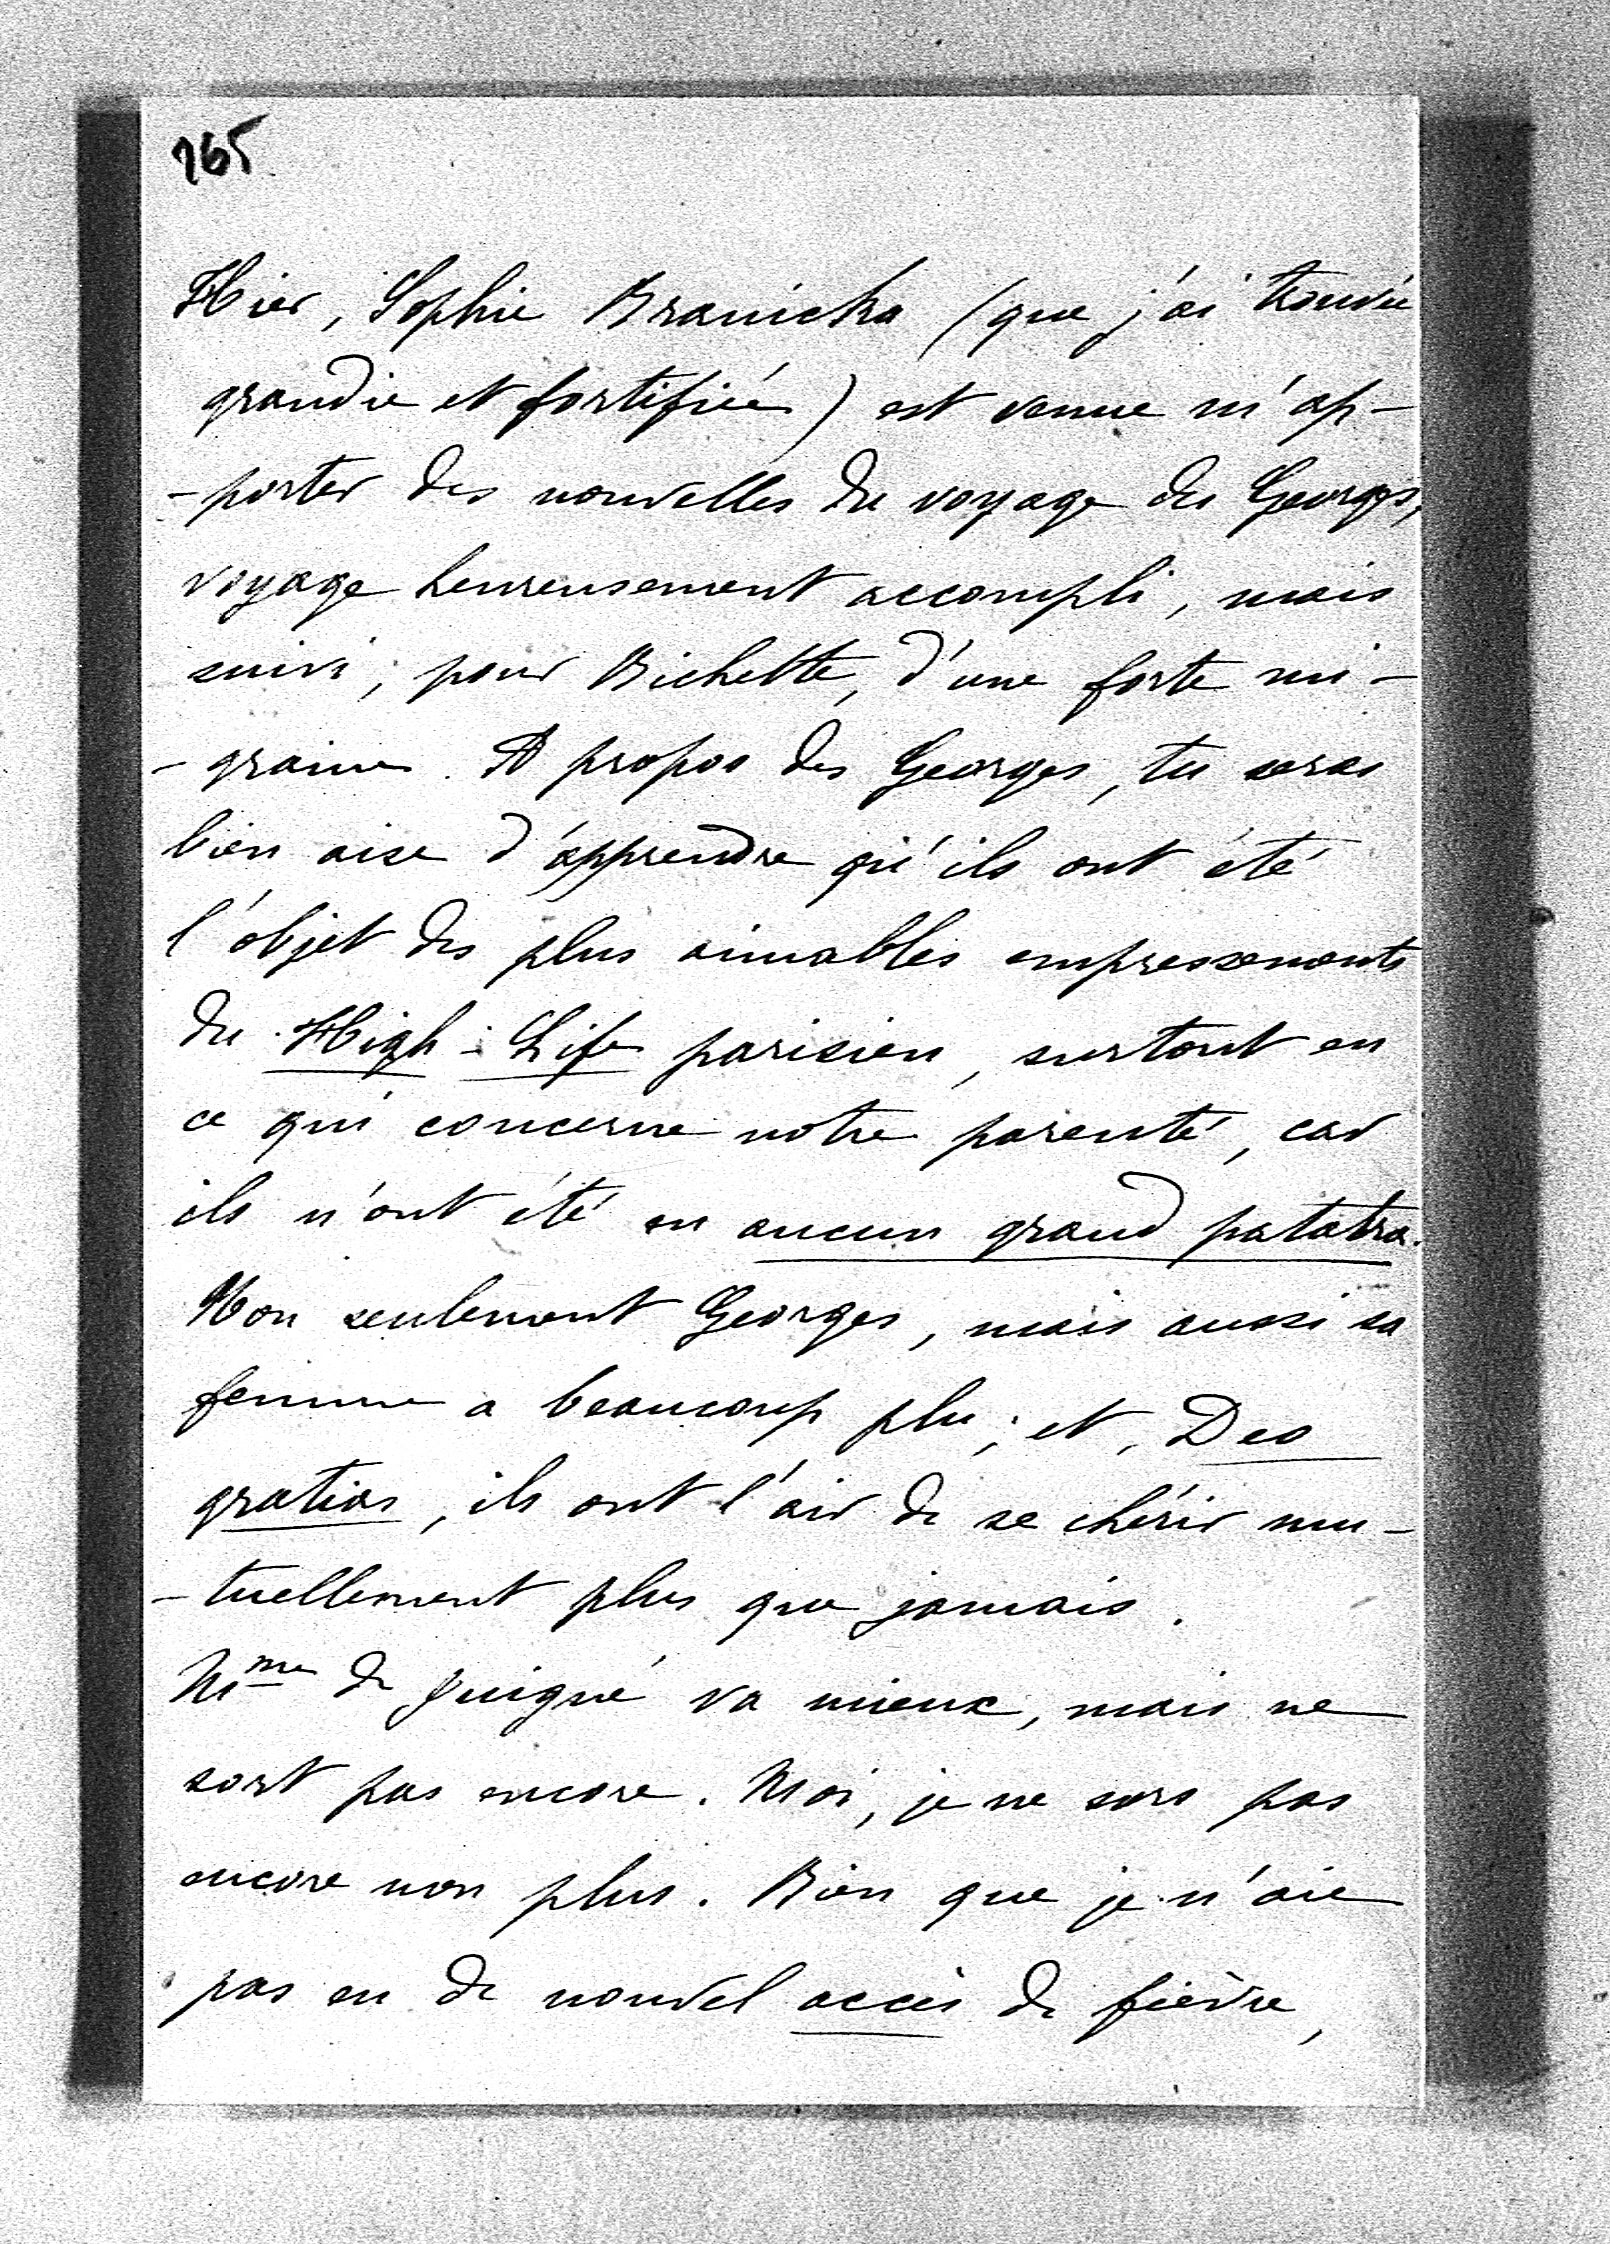 765
Hier, Sophie Branicka (que j'ai trouvée
grandie et fortifiée) est venue m'ap-
-porter des nouvelles du voyage des Georges,
voyage heureusement accompli, mais
suivi, pour Bichette, d'une forte mi-
-graine. A propos des Georges, tu seras
bien aise d'apprendre qu'ils ont été
l'objet des plus aimables empressements
du High-Life parisien, surtout en
ce qui concerne notre parenté, car
ils n'ont été en aucun grand patatra.
Non seulement Georges, mais aussi sa
femme a beaucoup plu; et, Deo
gratias, ils ont l'air de se chérir mu-
-tuellement plus que jamais.
Mme de Juigné va mieux, mais ne
sort pas encore. Moi, je ne sors pas
encore non plus. Bien que je n'aie
pas eu de nouvel accès de fièvre,